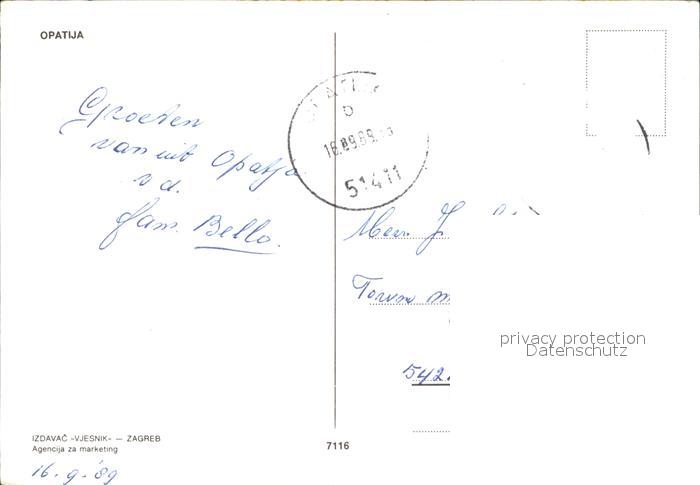 OPATIJA
Groeten
vanuit Opatja
v d.
fam. Bello.
OPATIJA
D
16.09.89.
51411
Mevr. J
Torun
542.
privacy protection
Datenschutz
IZDAVAČ »VJESNIK« — ZAGREB
Agencija za marketing
7116
16.9.'89